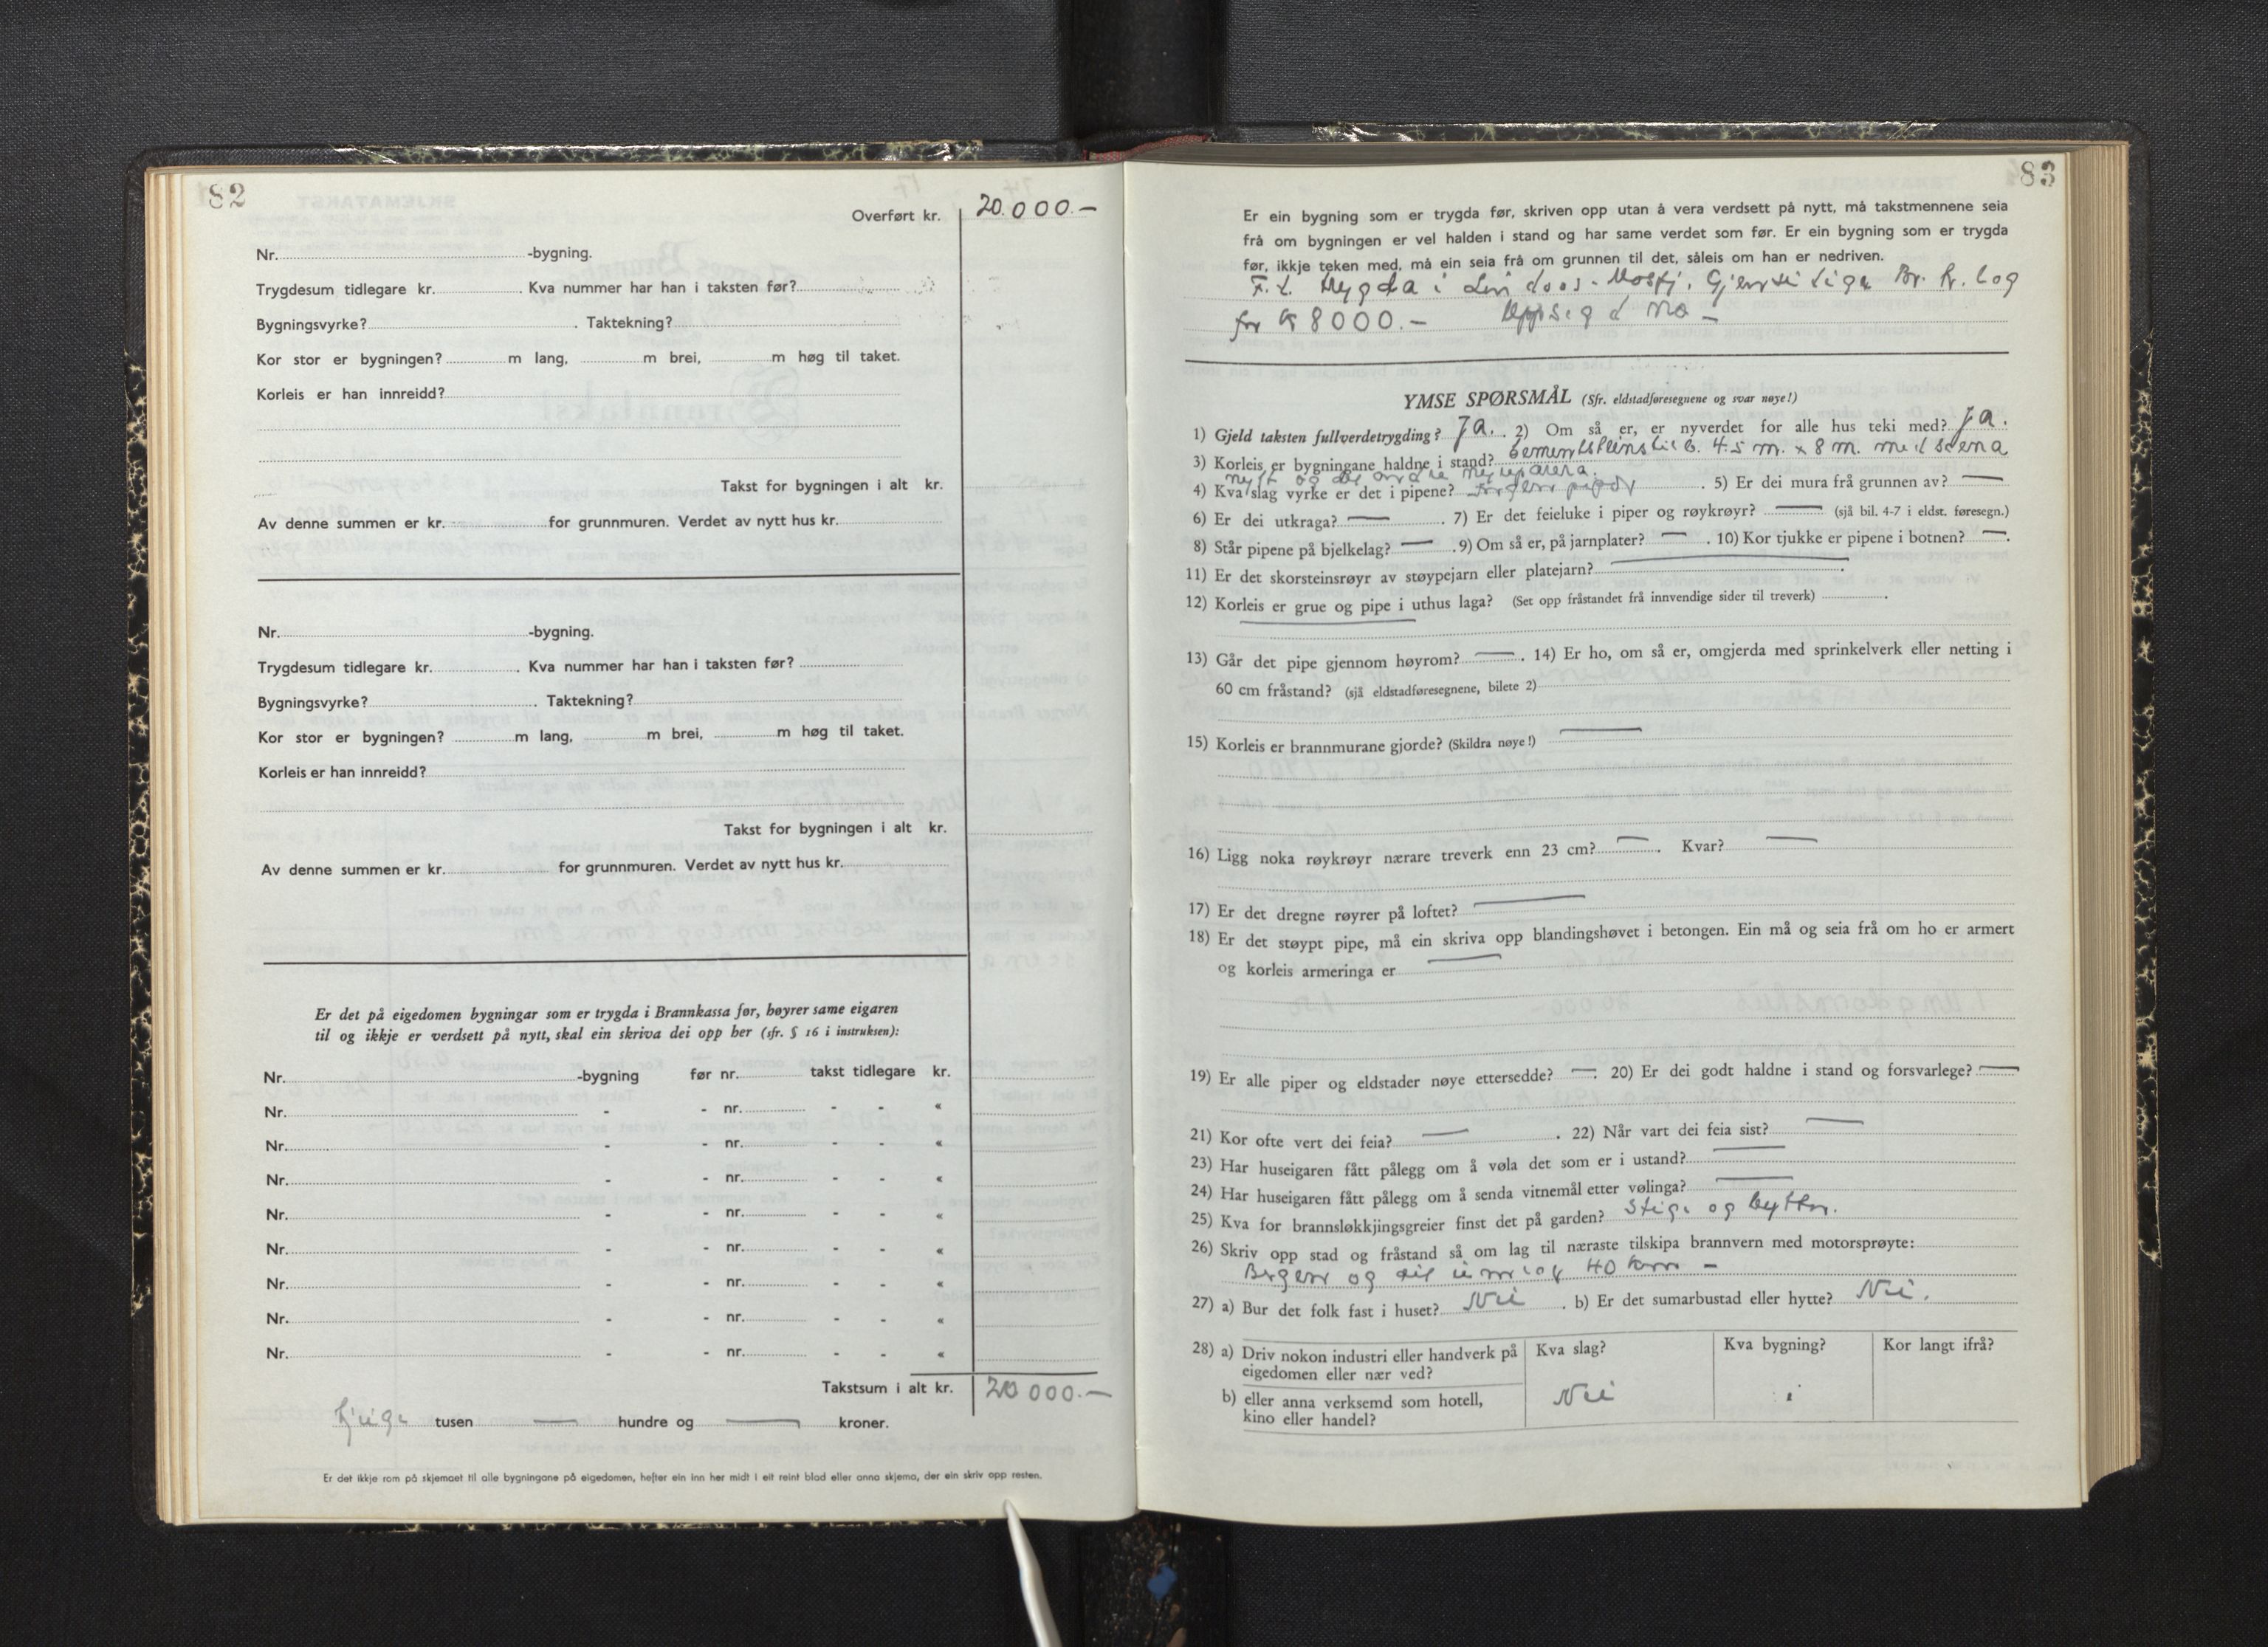 82
Overført kr. 20.000.-
Nr. -bygning.
Trygdesum tidlegare kr. . Kva nummer har han i taksten før?
Bygningsvyrke? . Taktekning?
Kor stor er bygningen? m lang, m brei, m høg til taket.
Korleis er han innreidd?
Takst for bygningen i alt kr.
Av denne summen er kr. for grunnmuren. Verdet av nytt hus kr.
Nr. -bygning.
Trygdesum tidlegare kr. . Kva nummer har han i taksten før?
Bygningsvyrke? . Taktekning?
Kor stor er bygningen? m lang, m brei, m høg til taket.
Korleis er han innreidd?
Takst for bygningen i alt kr.
Av denne summen er kr. for grunnmuren. Verdet av nytt hus kr.
Er det på eigedomen bygningar som er trygda i Brannkassa før, høyrer same eigaren
til og ikkje er verdsett på nytt, skal ein skriva dei opp her (sfr. § 16 i instruksen):
Nr. -bygning før nr. takst tidlegare kr.
Nr. - - nr. - - «
Nr. - - nr. - - «
Nr. - - nr. - - «
Nr. - - nr. - - «
Nr. - - nr. - - «
Nr. - - nr. - - «
Nr. - - nr. - - «
Nr. - - nr. - - «
Takstsum i alt kr. 20 000.-
tjuge tusen — hundre og — kroner.
Er det ikkje rom på skjemaet til alle bygningane på eigedomen, hefter ein inn her midt i eit reint blad eller anna skjema, der ein skriv opp resten.
83
Er ein bygning som er trygda før, skriven opp utan å vera verdsett på nytt, må takstmennene seia
frå om bygningen er vel halden i stand og har same verdet som før. Er ein bygning som er trygda
før, ikkje teken med, må ein seia frå om grunnen til det, såleis om han er nedriven.
F.t. trygda i Lindaas - Mosfj. Gjensidige Br. tr. lag
for kr 8000.- Oppsagd
YMSE SPØRSMÅL (Sfr. eldstadføresegnene og svar nøye!)
1) Gjeld taksten fullverdetrygding? Ja. 2) Om så er, er nyverdet for alle hus teki med? Ja.
3) Korleis er bygningane haldne i stand? 4.5 m. x 8 m. med scena
nytt og det andre
4) Kva slag vyrke er det i pipene? Ingen piper . 5) Er dei mura frå grunnen av? —
6) Er dei utkraga? — . 7) Er det feieluke i piper og røykrøyr? — (sjå bil. 4-7 i eldst. føresegn.)
8) Står pipene på bjelkelag? — . 9) Om så er, på jarnplater? — . 10) Kor tjukke er pipene i botnen? — .
11) Er det skorsteinsrøyr av støypejarn eller platejarn? — .
12) Korleis er grue og pipe i uthus laga? (Set opp fråstandet frå innvendige sider til treverk) .
—
13) Går det pipe gjennom høyrom? — . 14) Er ho, om så er, omgjerda med sprinkelverk eller netting i
60 cm fråstand? (sjå eldstadføresegnene, bilete 2)
15) Korleis er brannmurane gjorde? (Skildra nøye!) —
16) Ligg noka røykrøyr nærare treverk enn 23 cm? — . Kvar? —
17) Er det dregne røyrer på loftet? —
18) Er det støypt pipe, må ein skriva opp blandingshøvet i betongen. Ein må og seia frå om ho er armert
og korleis armeringa er —
19) Er alle piper og eldstader nøye ettersedde? — . 20) Er dei godt haldne i stand og forsvarlege? —
21) Kor ofte vert dei feia? — . 22) Når vart dei feia sist? —
23) Har huseigaren fått pålegg om å vøla det som er i ustand? —
24) Har huseigaren fått pålegg om å senda vitnemål etter vølinga? —
25) Kva for brannsløkkjingsgreier finst det på garden? Stige og bytter.
26) Skriv opp stad og fråstand så om lag til næraste tilskipa brannvern med motorsprøyte:
Bergen og dit er om lag 40 km -
27) a) Bur det folk fast i huset? Nei . b) Er det sumarbustad eller hytte? Nei.
28) a) Driv nokon industri eller handverk på eigedomen eller nær ved? Kva slag? Kva bygning? Kor langt ifrå?
b) eller anna verksemd som hotell, kino eller handel? Nei